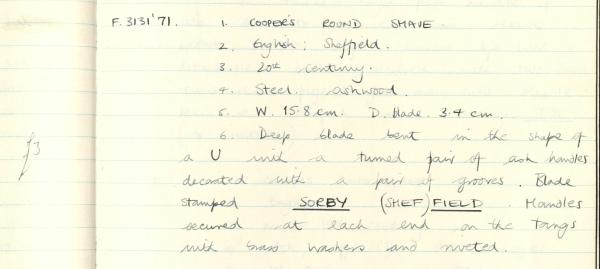 F.3131'71. 1. COOPER'S ROUND SHAVE
2. English; Sheffield.
3. 20th century.
4. Steel. ashwood.
5. W. 15.8.cm. D. blade. 3.4 cm.
6. Deep blade bent in the shape of
a U with a turned pair of ash handles
f3
decorated with a pair of grooves. Blade
stamped SORBY (SHEF)FIELD. Handles
secured at each end on the tangs
with brass washers and riveted.